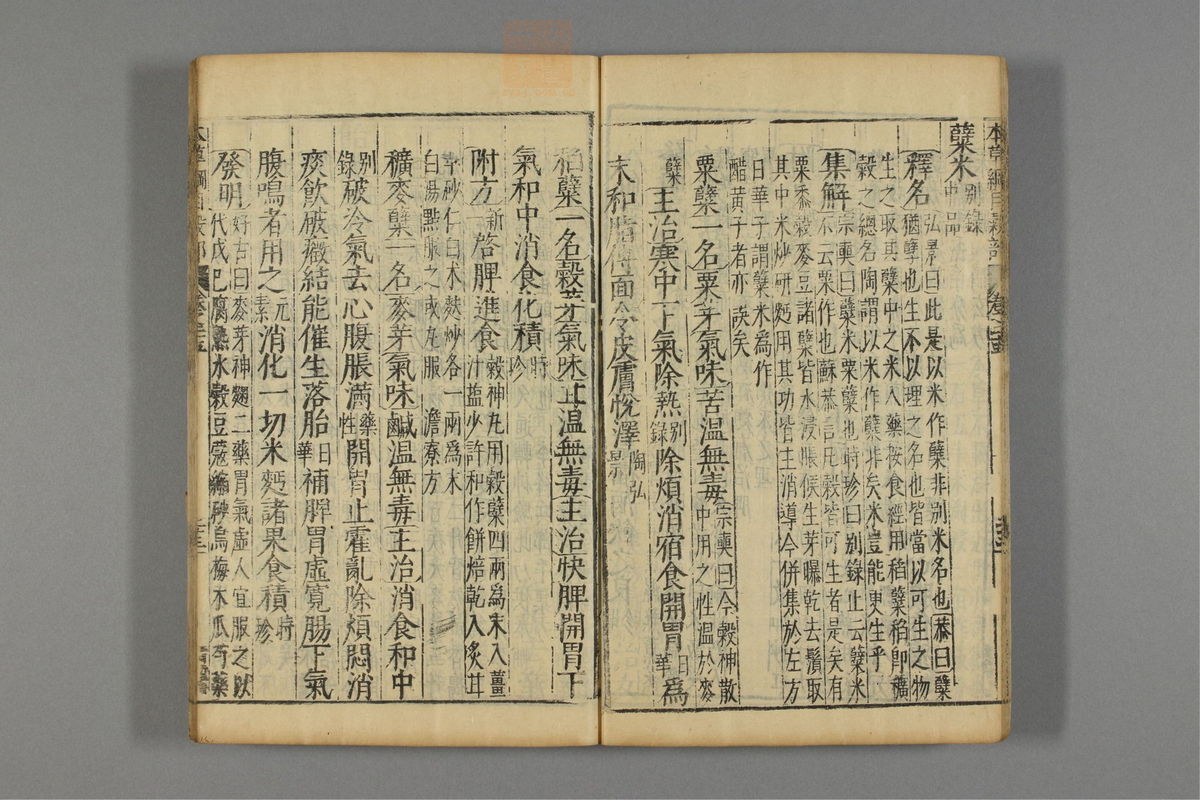 本草綱目穀部 卷二十五
蘖米别錄中品
釋名
弘景曰此是以米作蘖非别米名也恭曰蘖
猶孽也生不以理之名也皆當以可生之物
生之取其蘖中之米入藥按食經用稻蘖稻即穬
穀之總名陶謂以米作蘖非矣米豈能更生乎
集解
宗奭曰蘖米粟蘖也時珍曰别錄止云蘖米
不云粟作也蘇恭言凡穀皆可生者是矣有
粟黍穀麥豆諸蘖皆水浸脹候生芽曝乾去鬚取
其中米炒研麪用其功皆主消導今併集於左方
日華子謂蘖米爲作
醋黄子者亦誤矣
粟蘖一名粟芽氣味苦温無毒
宗奭曰今穀神散
中用之性温於麥
蘖
主治寒中下氣除熱别錄除煩消宿食開胃日華爲
末和脂傅面令皮膚悦澤陶弘景
稻蘖一名穀芽氣味甘温無毒主治快脾開胃下
氣和中消食化積時珍
附方新啓脾進食
穀神丸用穀蘖四兩爲末入薑
汁盐少許和作餅焙乾入炙甘
草砂仁白术麩炒各一兩爲末
白湯點服之或丸服 澹寮方
穬麥蘖一名麥芽氣味鹹温無毒主治消食和中
别錄破冷氣去心腹脹滿藥性開胃止霍亂除煩悶消
痰飲破癥結能催生落胎日華補脾胃虛寛腸下氣
腹鳴者用之元素消化一切米麪諸果食積時珍
發明
好古曰麥芽神麴二藥胃氣虛人宜服之以
代戊己腐熟水穀豆蔻縮砂烏梅木瓜芍藥
本草綱目穀部 卷二十五